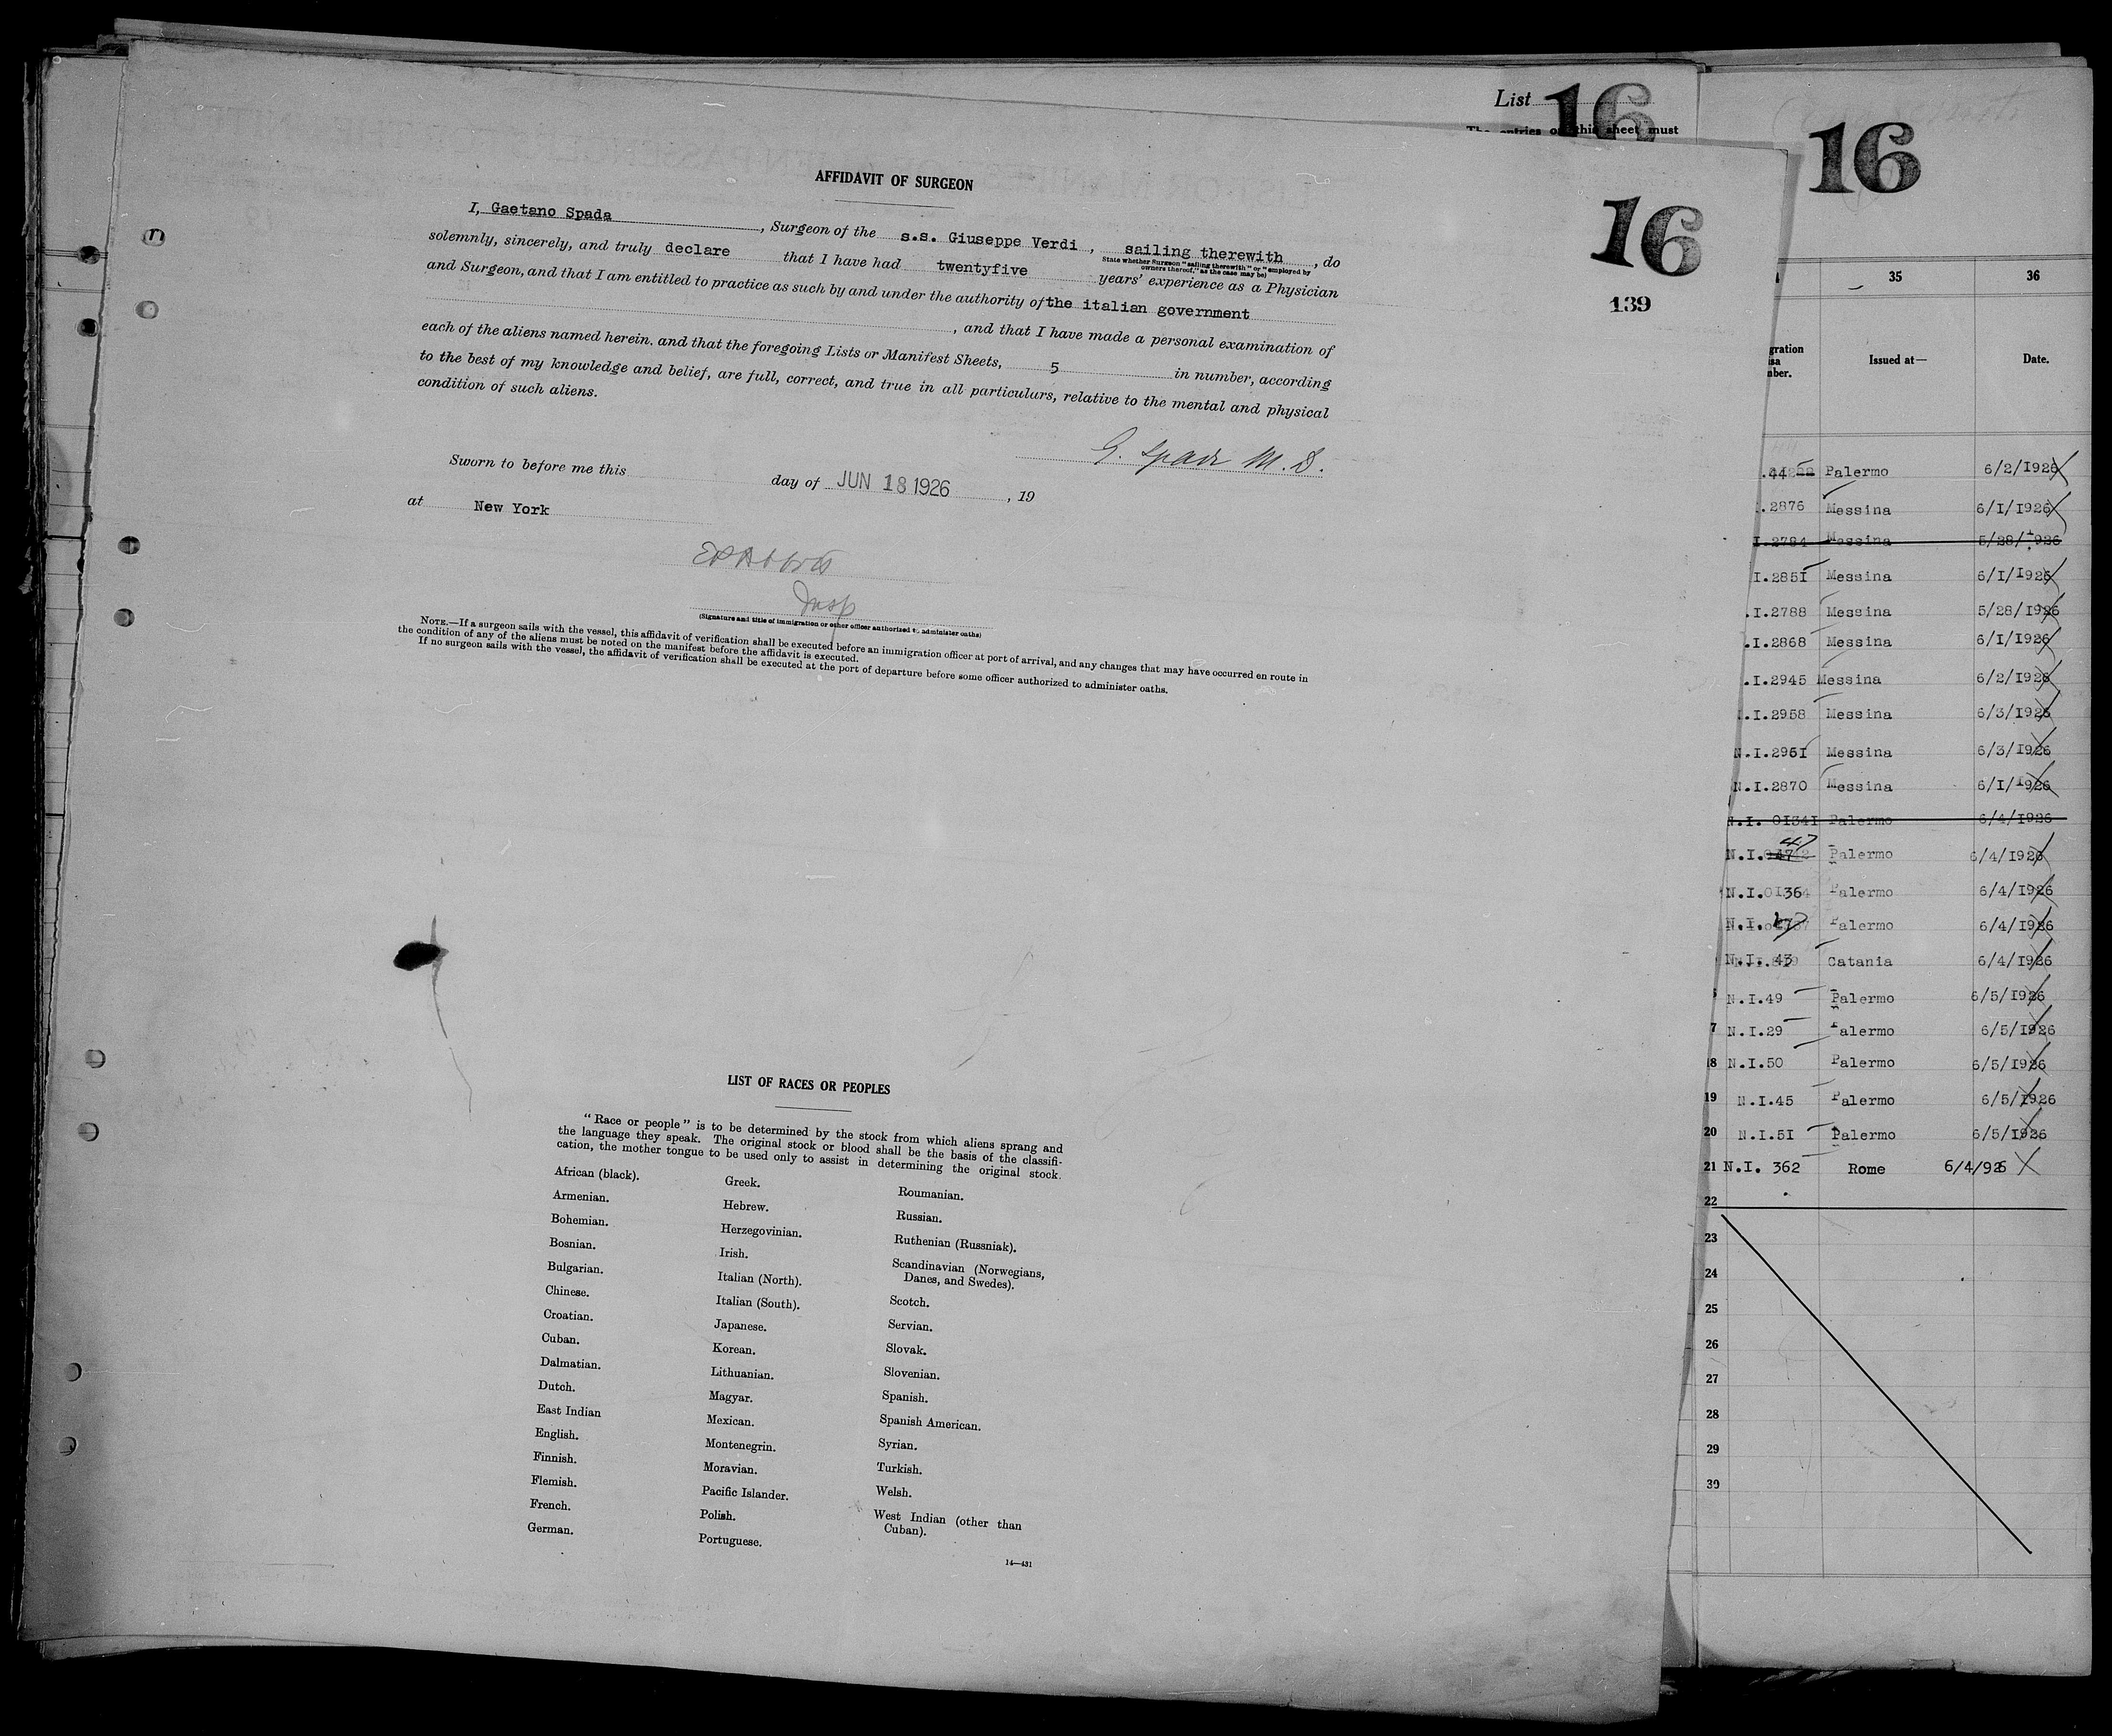 List 16
The entries on this sheet must
16
16
139
AFFIDAVIT OF SURGEON
I, Gaetano Spada, Surgeon of the s.s. Giuseppe Verdi, sailing therewith, do
State whether Surgeon "sailing therewith" or "employed by
owners thereof," as the case may be)
solemnly, sincerely, and truly declare that I have had twentyfive years' experience as a Physician
and Surgeon, and that I am entitled to practice as such by and under the authority of the italian government
, and that I have made a personal examination of
each of the aliens named herein. and that the foregoing Lists or Manifest Sheets, 5 in number, according
to the best of my knowledge and belief, are full, correct, and true in all particulars, relative to the mental and physical
condition of such aliens.
G. Spada M. D.
Sworn to before me this day of JUN 18 1926, 19
at New York
Insp
(Signature and title of immigration or other officer authorized to administer oaths)
NOTE.—If a surgeon sails with the vessel, this affidavit of verification shall be executed before an immigration officer at port of arrival, and any changes that may have occurred en route in
the condition of any of the aliens must be noted on the manifest before the affidavit is executed.
If no surgeon sails with the vessel, the affidavit of verification shall be executed at the port of departure before some officer authorized to administer oaths.
LIST OF RACES OR PEOPLES
"Race or people" is to be determined by the stock from which aliens sprang and
the language they speak. The original stock or blood shall be the basis of the classifi-
cation, the mother tongue to be used only to assist in determining the original stock.
African (black).
Armenian.
Bohemian.
Bosnian.
Bulgarian.
Chinese.
Croatian.
Cuban.
Dalmatian.
Dutch.
East Indian
English.
Finnish.
Flemish.
French.
German.
Greek.
Hebrew.
Herzegovinian.
Irish.
Italian (North).
Italian (South).
Japanese.
Korean.
Lithuanian.
Magyar.
Mexican.
Montenegrin.
Moravian.
Pacific Islander.
Polish.
Portuguese.
Roumanian.
Russian.
Ruthenian (Russniak).
Scandinavian (Norwegians,
Danes, and Swedes).
Scotch.
Servian.
Slovak.
Slovenian.
Spanish.
Spanish American.
Syrian.
Turkish.
Welsh.
West Indian (other than
Cuban).
14—431
35 36
Issued at— Date.
Palermo 6/2/1926
.2876 Messina 6/1/1926
I.2784 Messina 5/28/1926
I.2851 Messina 6/1/1926
.I.2788 Messina 5/28/1926
.I.2868 Messina 6/1/1926
.I.2945 Messina 6/2/1926
.I.2958 Messina 6/3/1926
N.I.2951 Messina 6/3/1926
N.I.2870 Messina 6/1/1926
N.I. 01341 Palermo 6/4/1926
N.I. 47 Palermo 6/4/1926
N.I. 36 Palermo 6/4/1926
N.I. Palermo 6/4/1926
N.I. 43 Catania 6/4/1926
N.I.49 Palermo 6/5/1926
7 N.I.29 Palermo 6/5/1926
18 N.I.50 Palermo 6/5/1926
19 N.I.45 Palermo 6/5/1926
20 N.I.51 Palermo 6/5/1926
21 N.I. 362 Rome 6/4/926
22
23
24
25
26
27
28
29
30